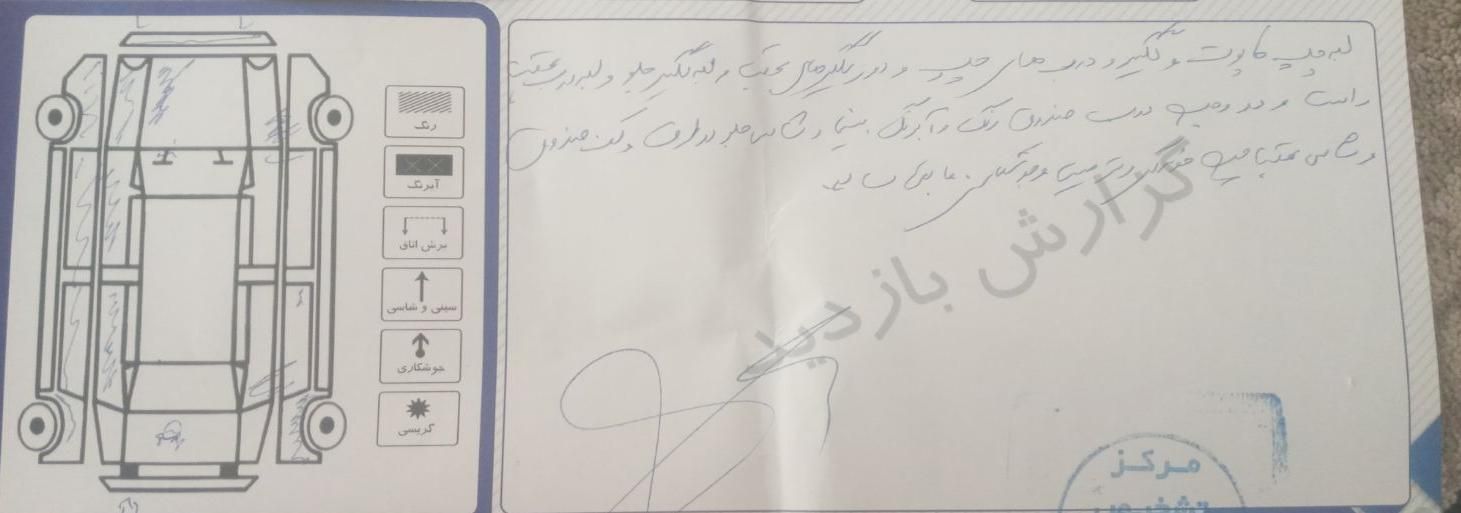 رنگ
آبرنگ
برش اتاق
سینی و شاسی
جوشکاری
گریسی
لبه چپ کاپوت و گلگیر و درب های چپ و دور گلگیرهای عقب و لبه گلگیر جلو و لبه درب عقب
راست و درب صندوق رنگ و آبرنگ جلو دو طرف و کف صندوق
و شاسی عقب چپ خوردگی و جوشکاری
گزارش بازدید
مرکز